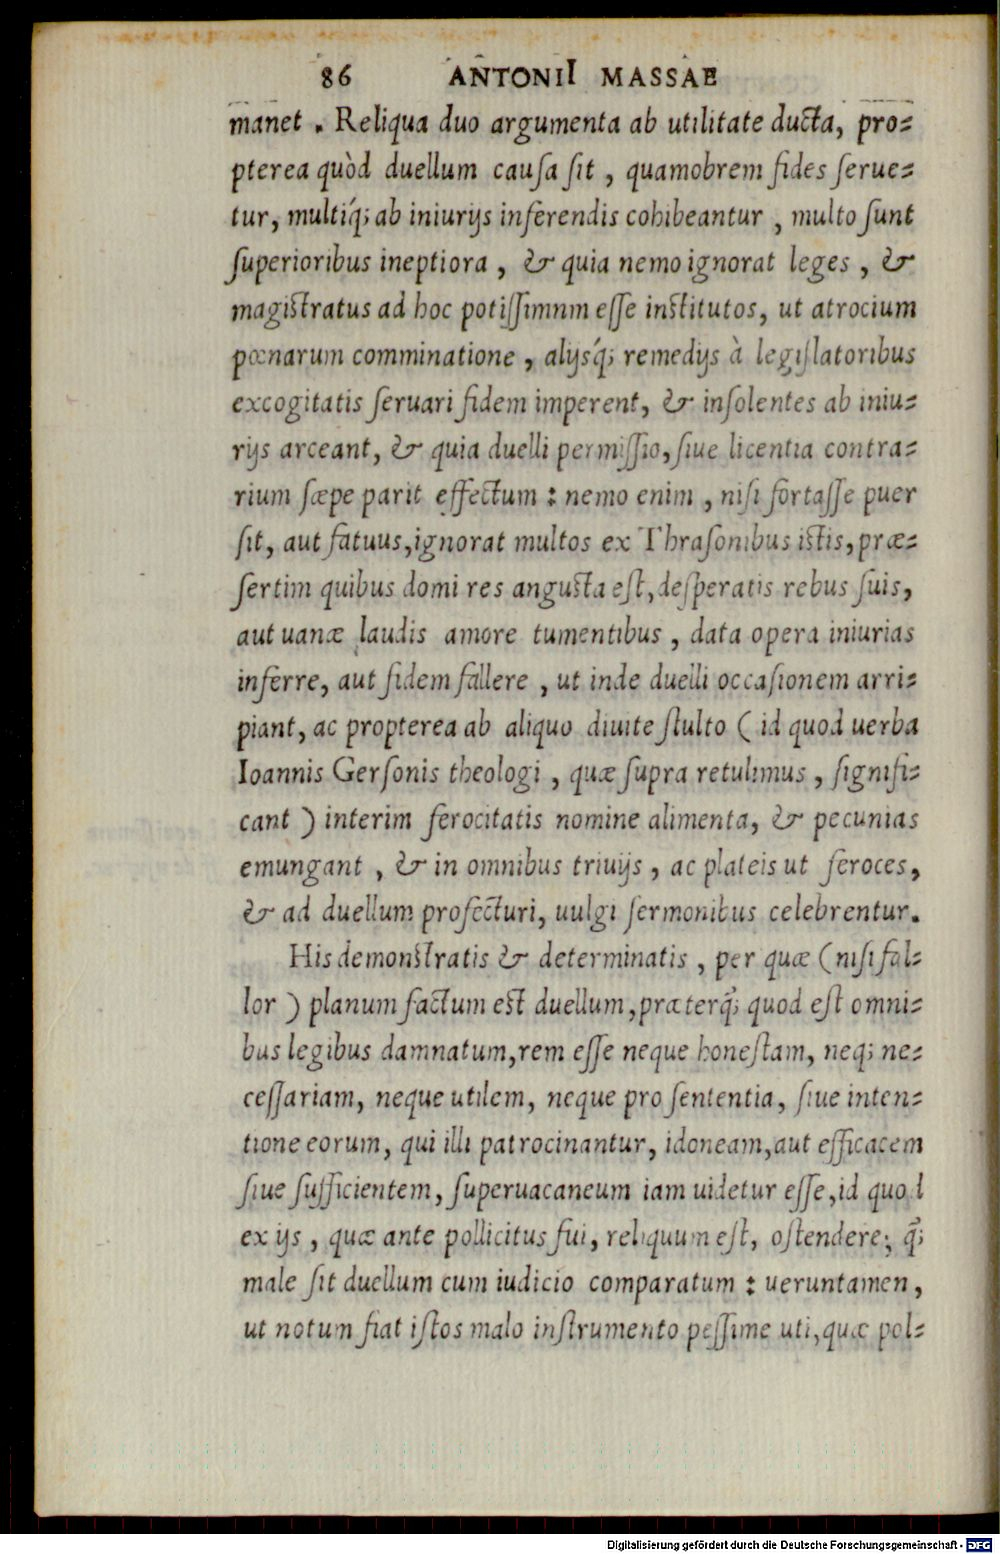 86 ANTONII MASSAE
manet . Reliqua duo argumenta ab utilitate ducta, pro⸗
pterea quòd duellum cauſa ſit , quamobrem fides ſerue⸗
tur, multiq́; ab iniurijs inferendis cohibeantur , multo ſunt
ſuperioribus ineptiora , & quia nemo ignorat leges , &
magiſtratus ad hoc potiſſimnm eſſe inſtitutos, ut atrocium
pœnarum comminatione , alijsq́; remedijs à legiſlatoribus
excogitatis ſeruari fidem imperent, & inſolentes ab iniu⸗
rijs arceant, & quia duelli permiſſio, ſiue licentia contra⸗
rium ſæpe parit effectum : nemo enim , niſi fortaſſe puer
ſit, aut fatuus, ignorat multos ex Thraſonibus iſtis, præ⸗
ſertim quibus domi res anguſta eſt, deſperatis rebus ſuis,
aut uanæ laudis amore tumentibus , data opera iniurias
inferre, aut fidem fallere , ut inde duelli occaſionem arri⸗
piant, ac propterea ab aliquo diuite ſtulto ( id quod uerba
Ioannis Gerſonis theologi , quæ ſupra retulimus , ſignifi⸗
cant ) interim ferocitatis nomine alimenta, & pecunias
emungant , & in omnibus triuijs , ac plateis ut feroces,
& ad duellum profecturi, uulgi ſermonibus celebrentur.
His demonſtratis & determinatis , per quæ ( niſi fal⸗
lor ) planum factum eſt duellum, præterq̃; quod eſt omni⸗
bus legibus damnatum, rem eſſe neque honeſtam, neq; ne⸗
ceſſariam, neque utilem, neque pro ſententia, ſiue inten⸗
tione eorum, qui illi patrocinantur, idoneam, aut efficacem
ſiue ſufficientem, ſuperuacaneum iam uidetur eſſe, id quod
ex ijs , quæ ante pollicitus fui, reliquum eſt, oſtendere; q̃;
male ſit duellum cum iudicio comparatum : ueruntamen ,
ut notum fiat iſtos malo inſtrumento peſſime uti, quæ pol⸗
Digitalisierung gefördert durch die Deutsche Forschungsgemeinschaft - DFG